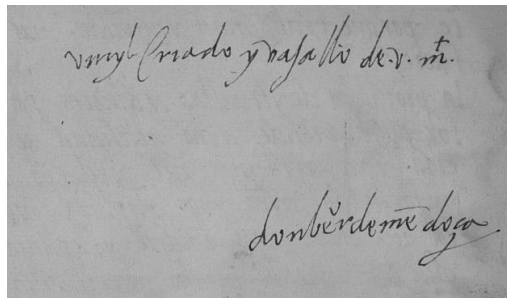 vmyl criado y vasallo de .v. mt.
don berdemẽdoça